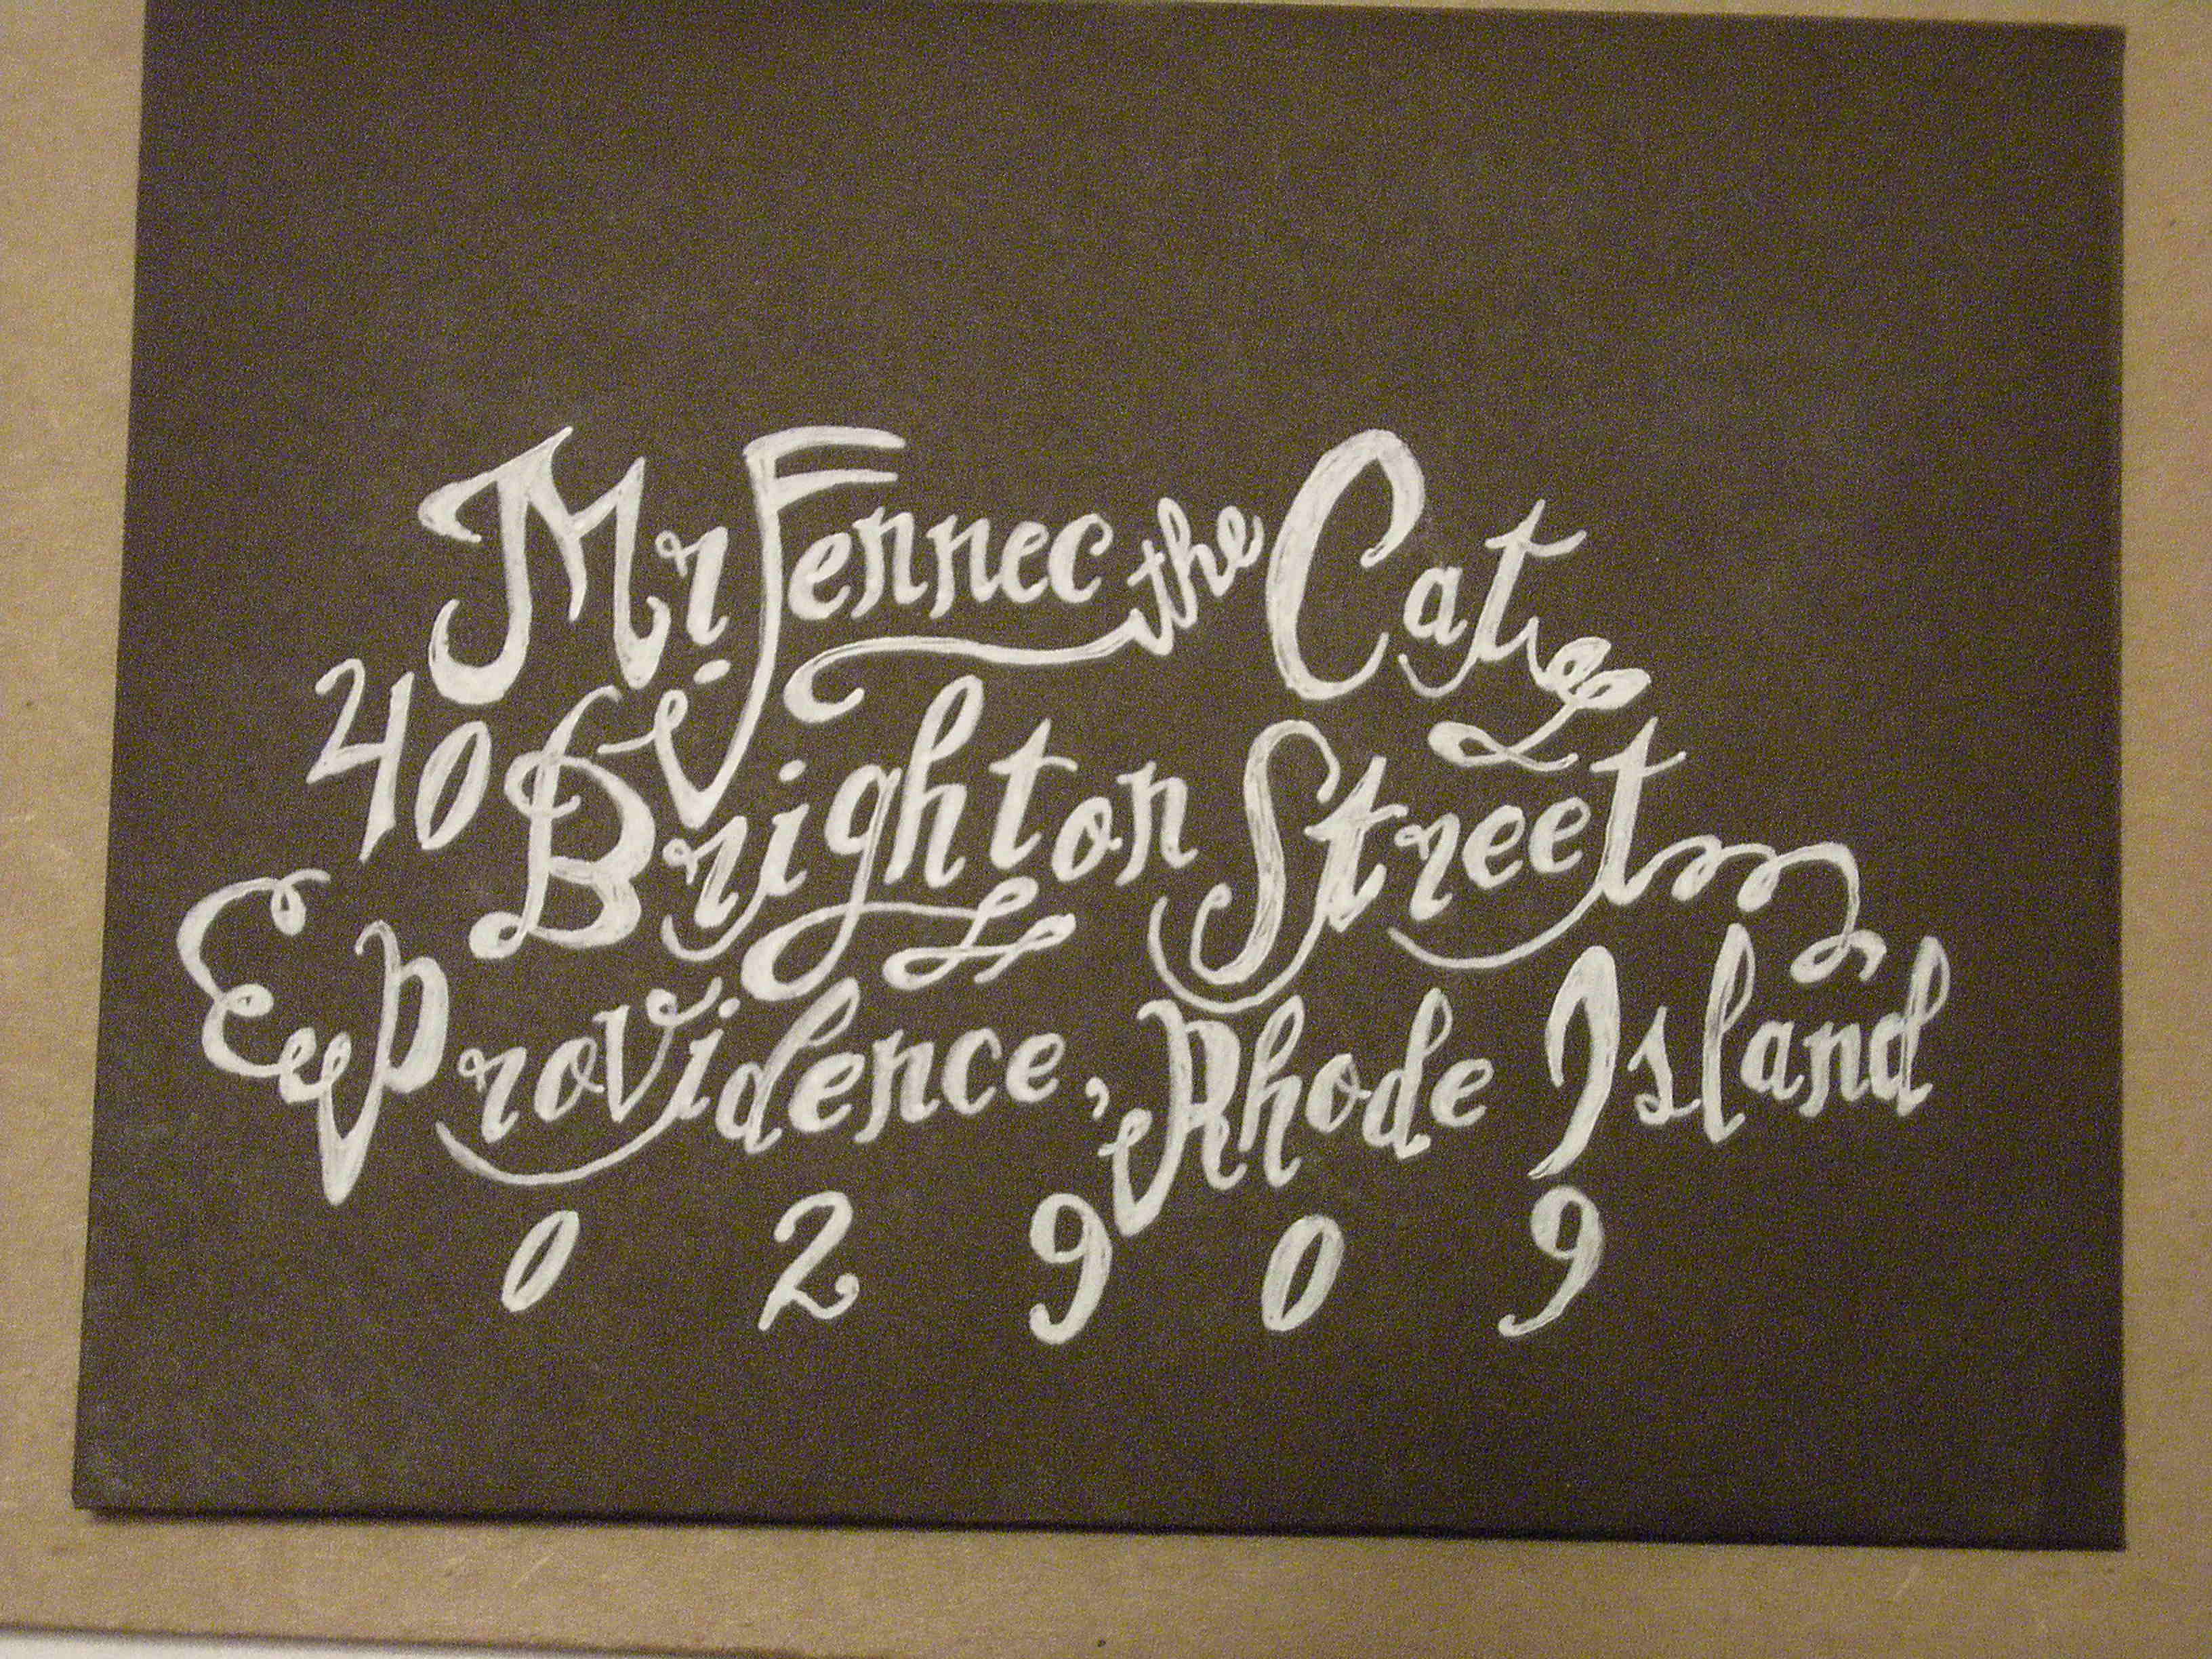 Mr Fennec the Cat
40 Brighton Street
E Providence, Rhode Island
02909